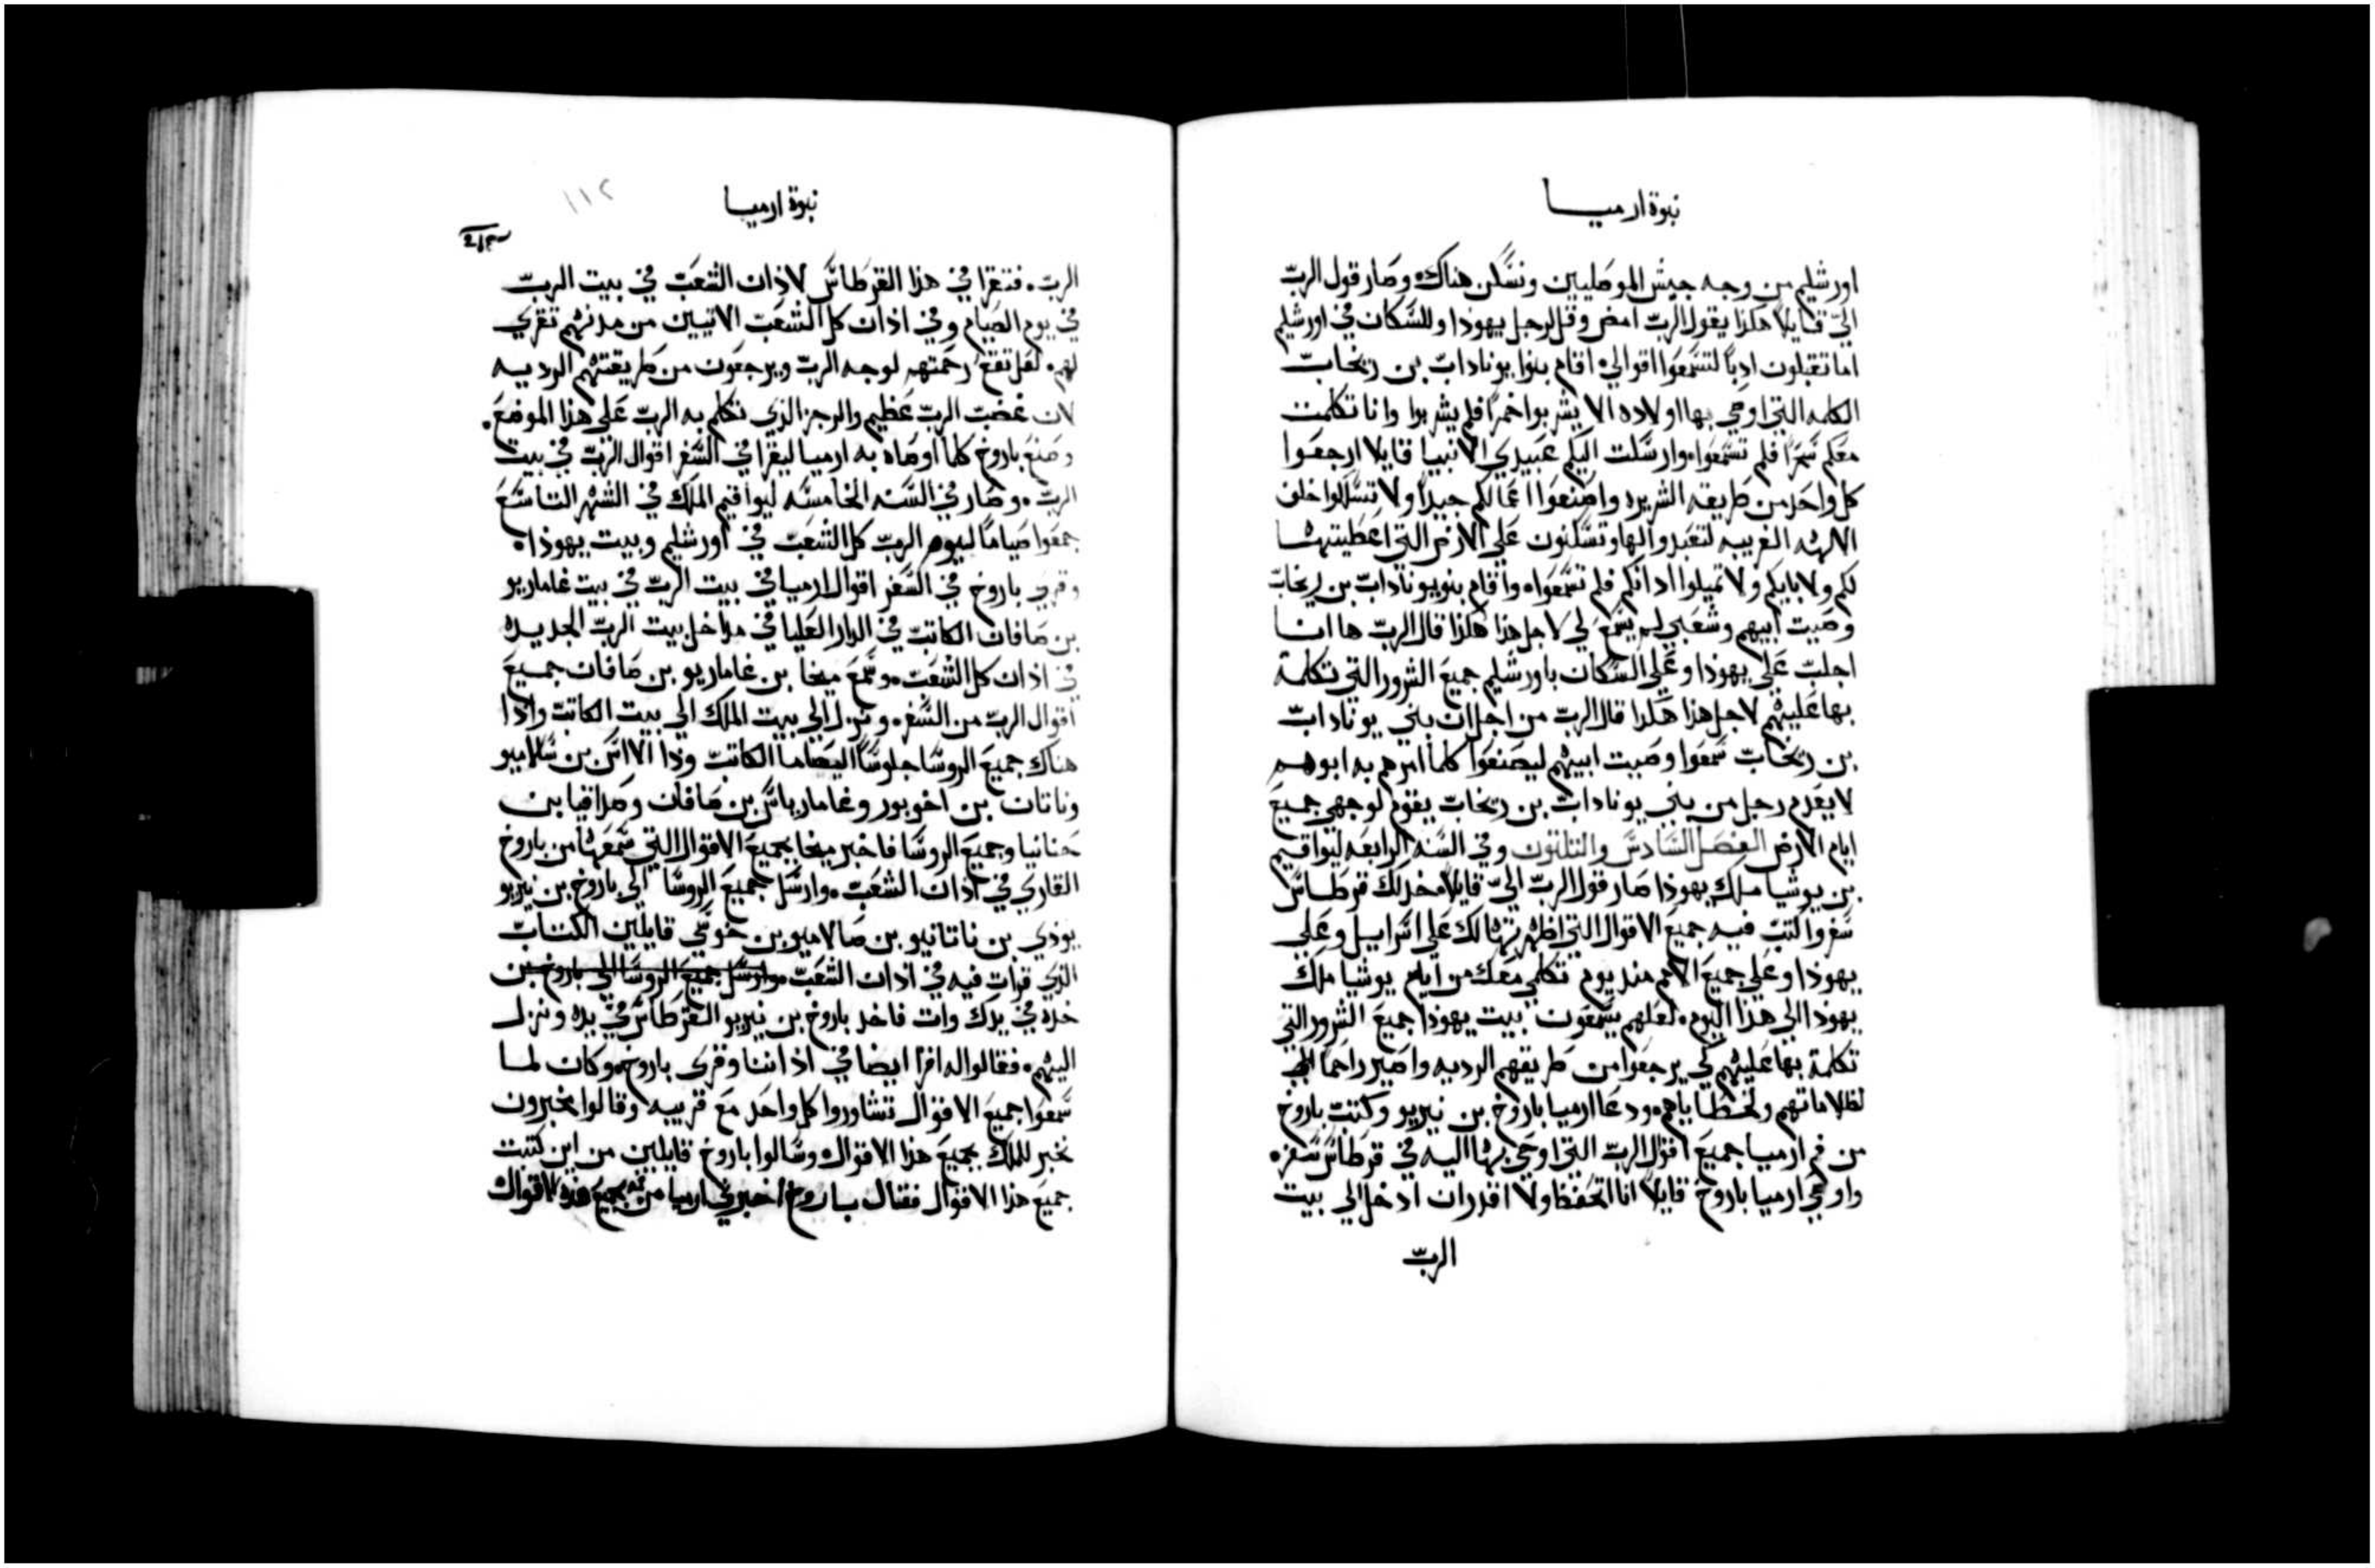 نبوة ارميا
اورشليم من وجه جيش الموصليين ونسكن هناك وصار قول الربّ
اليّ قايلاً هكذا يقول الربّ امض وقل لرجل يهوذا وللسكان في اورشليم
اما تقبلون ادباً لتسمعوا اقوالي اقام بنوا يوناداب بن ريخاب
الكلمه التي اوصي بها اولاده الا يشربوا خمراً فلم يشربوا وانا تكلمت
معكم سحراً فلم تسمعوا وارسلت اليكم عبيدي الانبيا قايلا ارجعوا
كل واحد من طريقه الشريره واصنعوا اعمالكم جيداً ولا تسلكوا خلف
الالهه الغريبه لتعبدوا لها وتسكنون علي الارض التي اعطيتها
لكم ولابايكم ولا تميلوا اذانكم فلم تسمعوا واقام بنو يوناداب بن ريخاب
وصيت ابيهم وشعبي لم يسمع لي لاجل هذا هكذا قال الربّ ها انا
اجلب علي يهوذا وعلي السكان باورشليم جميع الشرور التي تكلمة
بها عليهم لاجل هذا هكذا قال الربّ من اجل ان بني يوناداب
بن ريخاب سمعوا وصيت ابيهم ليصنعوا كلما امرهم به ابوهم
لا يعدم رجل من بني يوناداب بن ريخاب يقوم لوجهي جميع
ايام الارض الفصل السادس والتلتون وفي السنه الرابعه ليواقيم
بن يوشيا ملك يهوذا صار قول الربّ اليّ قايلاً خد لك قرطاس
سفر واكتب فيه جميع الاقوال التي اظهرتها لك علي اسراييل وعلي
يهوذا وعلي جميع الامم منذ يوم تكلمي معك من ايام يوشيا ملك
يهوذا الي هذا اليوم لعلهم يسمعون بيت يهوذا جميع الشرور التي
تكلمة بها عليهم كي يرجعوا من طريقهم الرديه واصير راحما
لظلاماتهم ولخطاياهم ودعا ارميا باروخ بن نيريو وكتب باروخ
من فم ارميا جميع اقوال الربّ التي اوحي بها اليه في قرطاس سفره
واوصي ارميا باروخ قايلاً انا اتحفظ ولا اقدر ان ادخل الي بيت
الربّ
نبوة ارميا
١١٢
الربّ. فتقرا في هذا القرطاس لاذان الشعب في بيت الربّ
في يوم الصيام وفي اذان كل الشعب الاتيين من مدنهم تقري
لهم. لعل تقع رحمتهم لوجه الربّ ويرجعون من طريقتهم الرديه
لان غضب الربّ عظيم والرجز الذي تكلم به الربّ علي هذا الموضع.
وصنع باروخ كلما اوصاه به ارميا ليقرا في السفر اقوال الربّ في بيت
الربّ. وصار في السنه الخامسه ليواقيم الملك في الشهر التاسع
جمعوا صياماً ليوم الربّ كل الشعب في اورشليم وبيت يهوذا.
وقري باروخ في السفر اقوال ارميا في بيت الربّ في بيت غاماريو
بن صافان الكاتب في الدار العليا في مداخل بيت الربّ الجديده
في اذان كل الشعب. وسمع ميخا بن غاماريو بن صافان جميع
اقوال الربّ من السفر. ونزل الي بيت الملك الي بيت الكاتب واذا
هناك جميع الروسا جلوساً اليصاما الكاتب ودالااس بن سلاميو
وناتان بن اخوبور وغامارياس بن صافان وصداقيا بن
حنانيا وجميع الروسا فاخبر ميخا بجميع الاقوال التي سمعها من باروخ
القاري في اذان الشعب. وارسل جميع الروسا الي باروخ بن نيريو
يودي بن ناتانيو بن صالاميو بن خوسي قايلين الكتاب
الذي قرات فيه في اذان الشعب وارسل جميع الروسا الي باروخ بن
خده في يدك وات فاخد باروخ بن نيريو القرطاس في يده ونزل
اليهم. فقالوا له اقرا ايضا في اذاننا وقري باروخ. وكان لما
سمعوا جميع الاقوال تشاوروا كل واحد مع قريبه وقالوا مخبرون
نخبر للملك بجميع هذا الاقوال وسالوا باروخ قايلين من اين كتبت
جميع هذا الاقوال فقال باروخ اخبرني ارميا من فمه بجميع هذه الاقوال